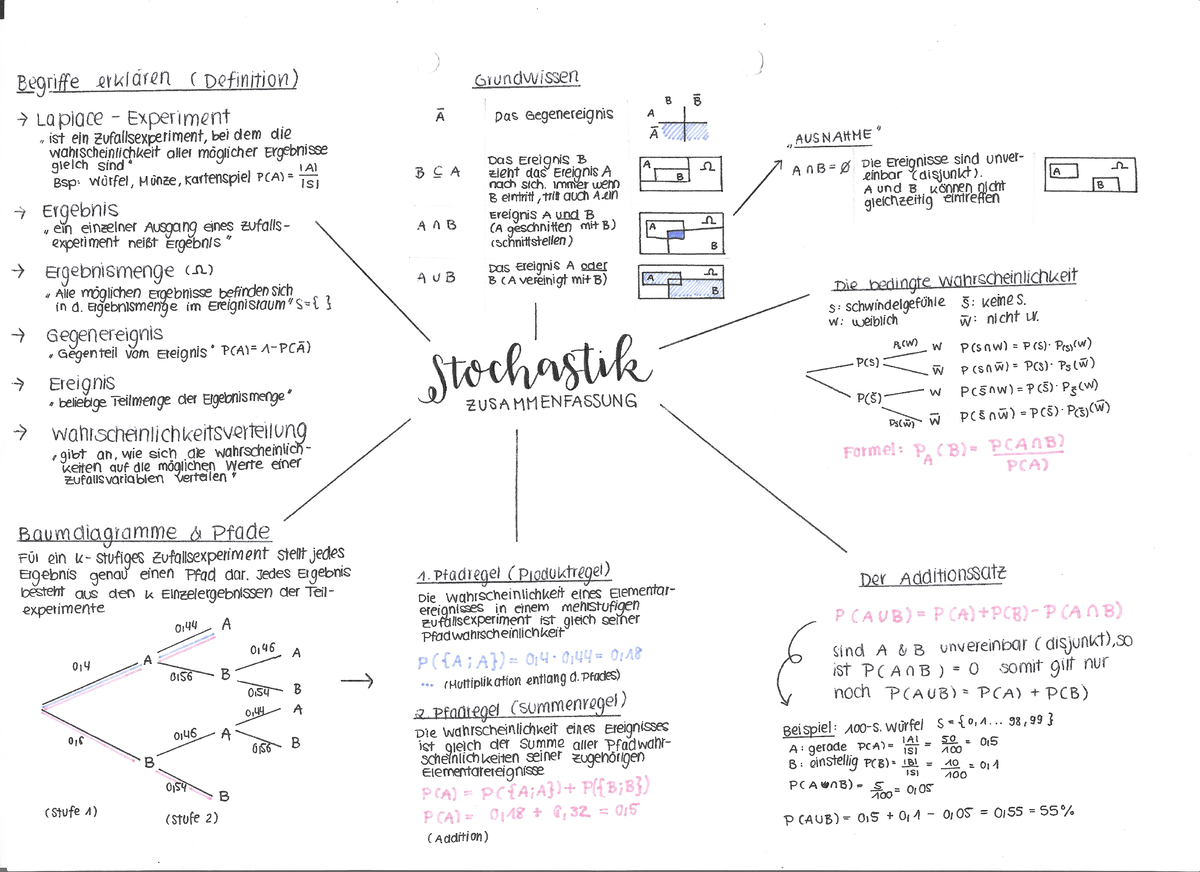 Begriffe erklären (Definition)
→ Laplace - Experiment
„ist ein Zufallsexperiment, bei dem die
Wahrscheinlichkeit aller möglicher Ergebnisse
gleich sind"
Bsp: Würfel, Münze, Kartenspiel P(A) = |A| / |S|
→ Ergebnis
„ein einzelner Ausgang eines Zufalls-
experiment heißt Ergebnis"
→ Ergebnismenge (Ω)
„Alle möglichen Ergebnisse befinden sich
in d. Ergebnismenge im Ereignisraum" S={ }
→ Gegenereignis
„Gegenteil vom Ereignis" P(A) = 1-P(Ā)
→ Ereignis
„beliebige Teilmenge der Ergebnismenge"
→ Wahrscheinlichkeitsverteilung
„gibt an, wie sich die Wahrscheinlich-
keiten auf die möglichen Werte einer
Zufallsvariablen verteilen"
Grundwissen
Ā Das Gegenereignis
B B̄
A
Ā
B ⊆ A Das Ereignis B
zieht das Ereignis A
nach sich. Immer wenn
B eintritt, tritt auch A ein
A B Ω
A ∩ B Ereignis A und B
(A geschnitten mit B)
(Schnittstellen)
A Ω B
A ∪ B Das Ereignis A oder
B (A vereinigt mit B)
A Ω B
„AUSNAHME"
A ∩ B = Ø Die Ereignisse sind unver-
einbar (disjunkt).
A und B können nicht
gleichzeitig eintreffen
A B Ω
Stochastik
ZUSAMMENFASSUNG
Die bedingte Wahrscheinlichkeit
S: Schwindelgefühle S̄: keine S.
W: weiblich W̄: nicht W.
Ps(W) W P(S∩W) = P(S)· P(S)(W)
P(S)
W̄ P(S∩W̄) = P(S)· Ps(W̄)
W P(S̄∩W) = P(S̄)· Ps̄(W)
P(S̄)
Ps̄(W̄) W̄ P(S̄∩W̄) = P(S̄)· P(S̄)(W̄)
Formel: P_A(B) = P(A∩B) / P(A)
Baumdiagramme & Pfade
Für ein k-stufiges Zufallsexperiment stellt jedes
Ergebnis genau einen Pfad dar. Jedes Ergebnis
besteht aus den k Einzelergebnissen der Teil-
experimente
0,44 A
0,4 A 0,46 A
0,56 B
0,54 B
0,44 A
0,6 0,46 A
0,56 B
B
0,54 B
(Stufe 1) (Stufe 2)
→
1. Pfadregel (Produktregel)
Die Wahrscheinlichkeit eines Elementar-
ereignisses in einem mehstufigen
Zufallsexperiment ist gleich seiner
Pfadwahrscheinlichkeit
P({A;A}) = 0,4 · 0,44 = 0,18
... (Multiplikation entlang d. Pfades)
2. Pfadregel (Summenregel)
Die Wahrscheinlichkeit eines Ereignisses
ist gleich der Summe aller Pfadwahr-
scheinlichkeiten seiner zugehörigen
Elementarereignisse
P(A) = P({A;A}) + P({B;B})
P(A) = 0,18 + 0,32 = 0,5
(Addition)
Der Additionssatz
P(A∪B) = P(A)+P(B)-P(A∩B)
sind A & B unvereinbar (disjunkt), so
ist P(A∩B) = 0 somit gilt nur
noch P(A∪B) = P(A) + P(B)
Beispiel: 100-S. Würfel S = {0,1... 98,99}
A: gerade P(A) = |A| / |S| = 50 / 100 = 0,5
B: einstellig P(B) = |B| / |S| = 10 / 100 = 0,1
P(A∩B) = 5 / 100 = 0,05
P(A∪B) = 0,5 + 0,1 - 0,05 = 0,55 = 55%